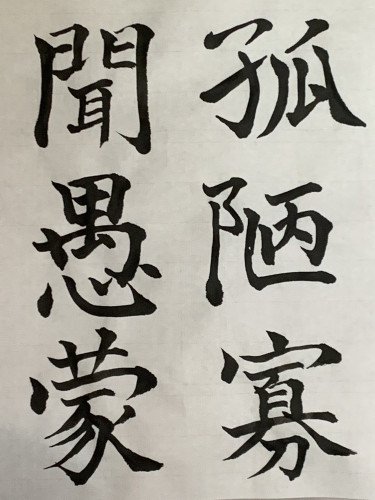 孤陋寡
聞愚蒙